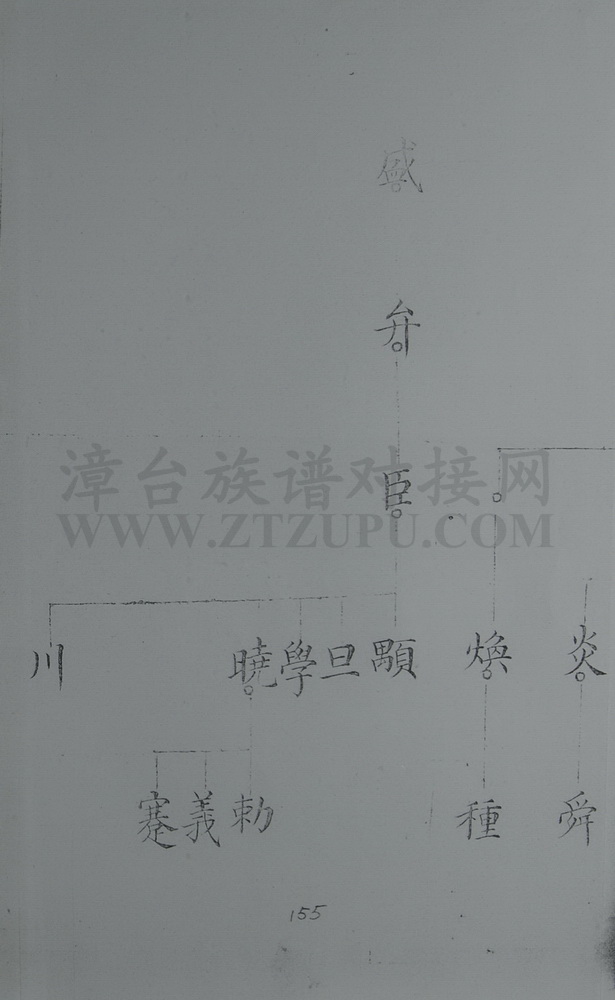 盛
弁
臣
漳台族谱对接网
WWW.ZTZUPU.COM
炎 煥 顯 旦 學 曉 川
舜 種 勑 義 蹇
155